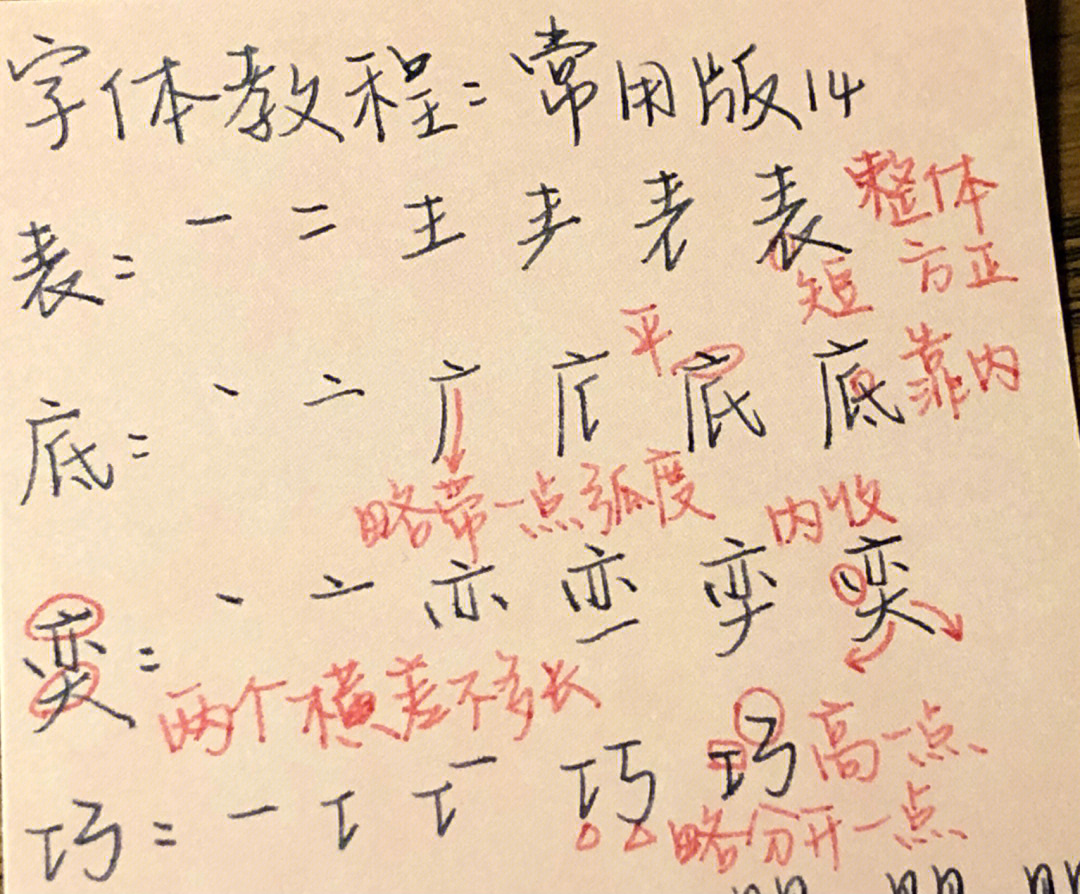 字体教程:常用版14
表: 一 二 主 表 表 整体
短 方正
平
底: 丶 亠 广 底 底 靠内
略带一点弧度 内收
变: 丶 亠 亦 变
两个横差不多长
巧: 一 工 巧 巧 高一点
略分开一点